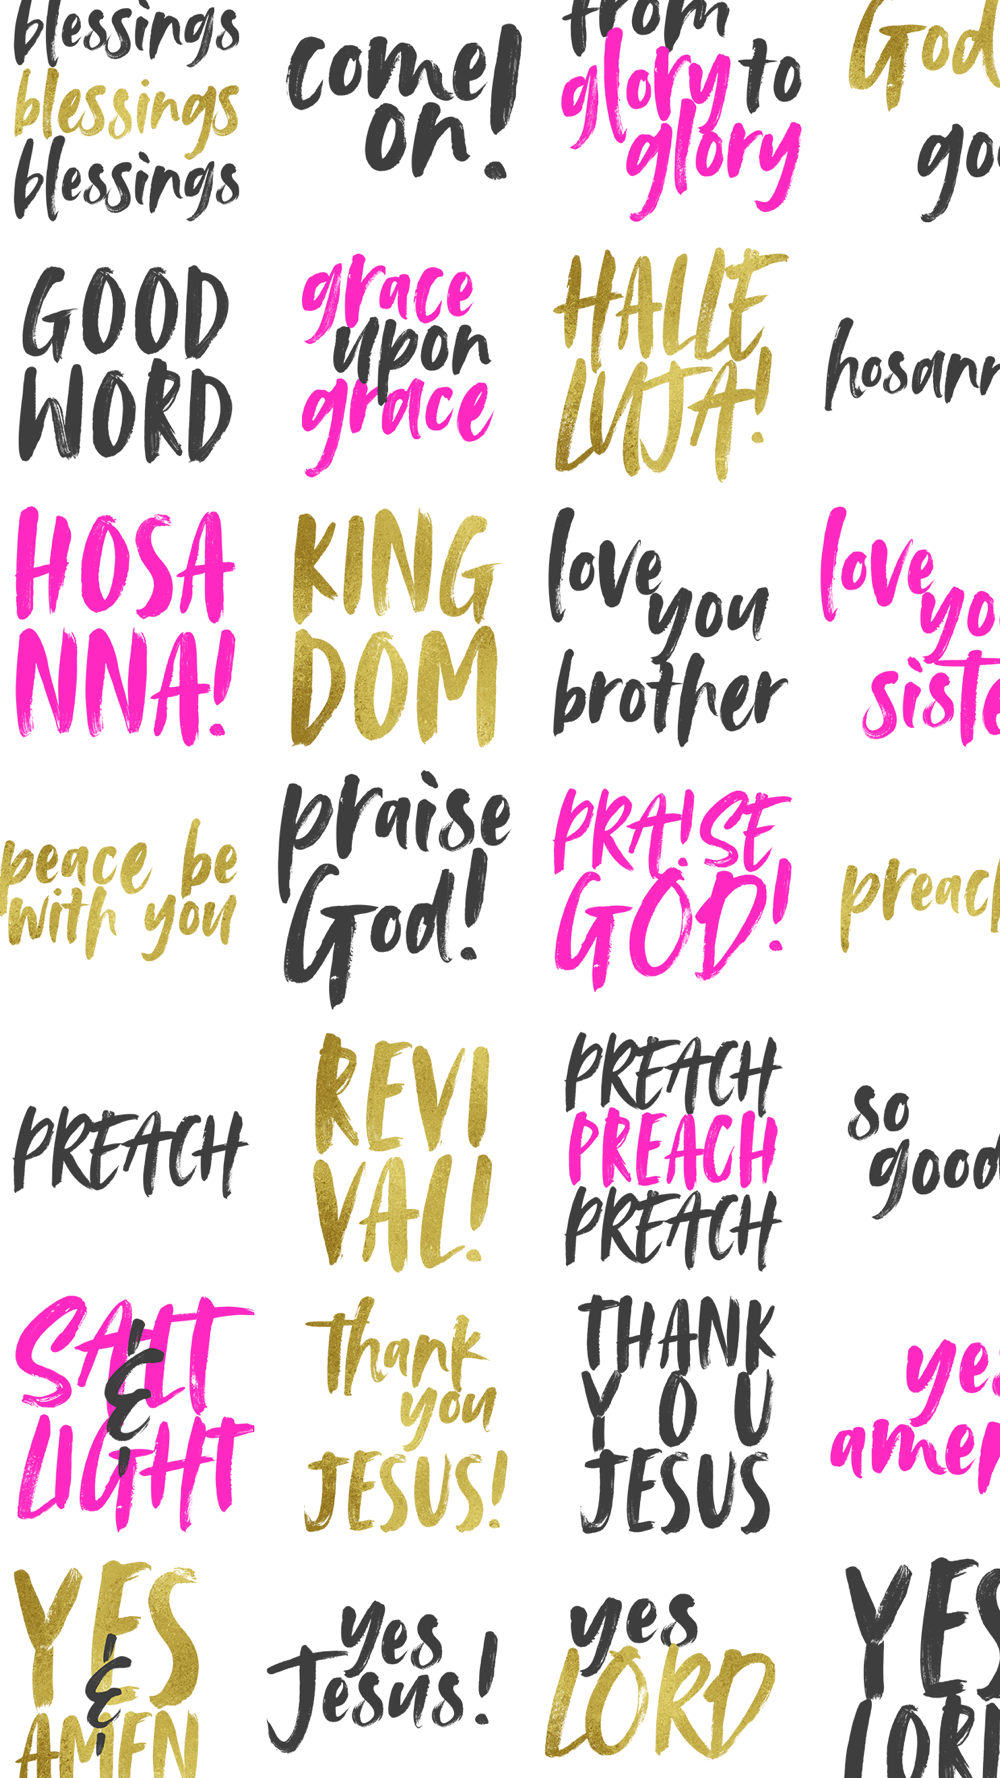 blessings
blessings
blessings
come
on!
from
glory to
glory
God
GOOD
WORD
grace
upon
grace
HALLE
LUJA!
HOSA
NNA!
KING
DOM
love
you
brother
love
peace be
with you
praise
God!
PRA!SE
GOD!
PREACH
REVI
VAL!
PREACH
PREACH
PREACH
so
good
SALT
&
LIGHT
thank
you
JESUS!
THANK
YOU
JESUS
YES
&
AMEN
yes
Jesus!
yes
LORD